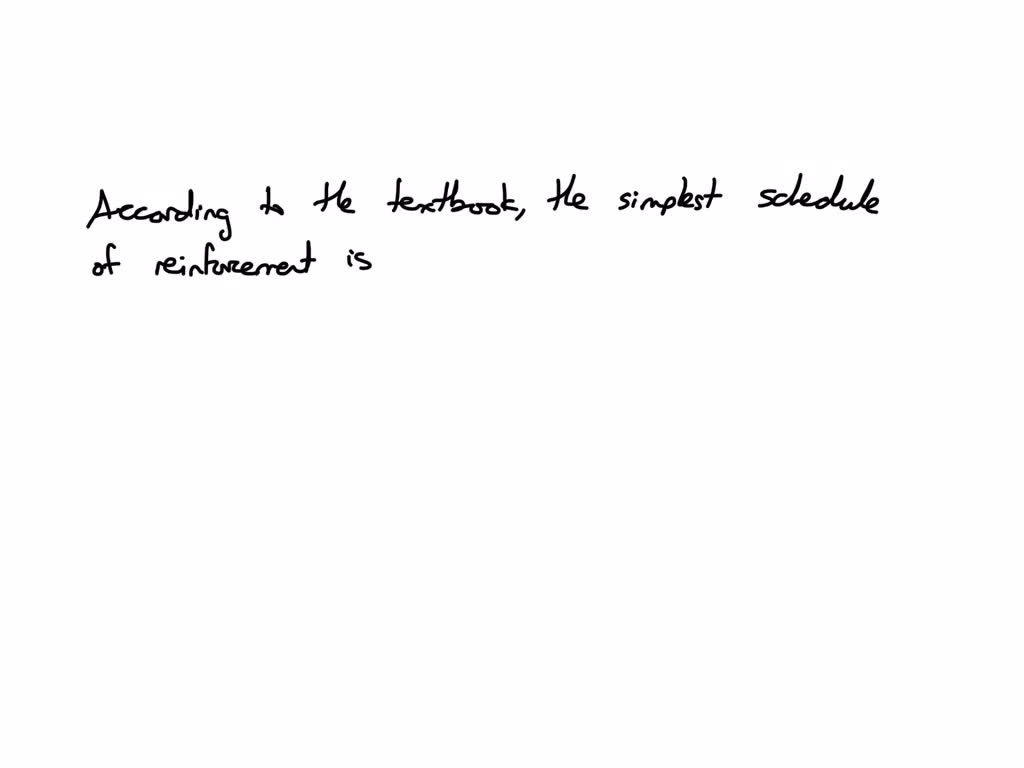 According to the textbook, the simplest schedule
of reinforcement is